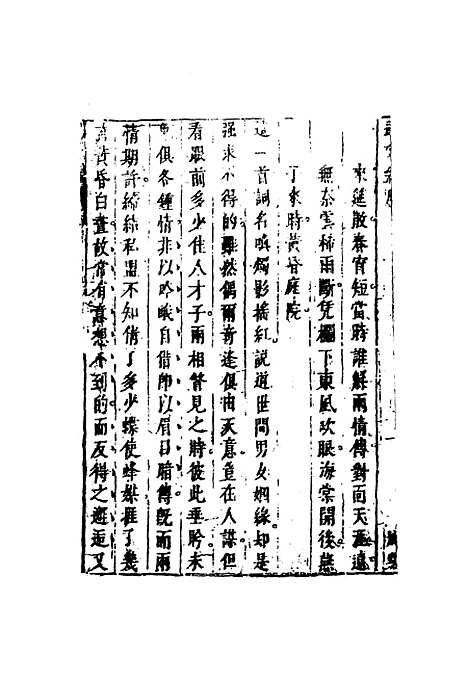 來筵散春宵短當時誰解兩情傳對面天涯遠
無奈雲稀雨斷凭欄下東風吹眼海棠開後燕
子來時黃昏庭院
這一首詞名喚燭影搖紅說道世間男女姻緣却是
强求不得的雖然偶爾奇逢俱由天意豈在人謀但
看眼前多少佳人才子兩相瞥見之時彼此垂盻未
免俱各鍾情非以吟咏自借卽以眉目暗傳旣而兩
情期許締結私盟不知倩了多少蝶使蜂媒捱了幾
黃昏白晝故常有意想不到的而反得之邂逅又